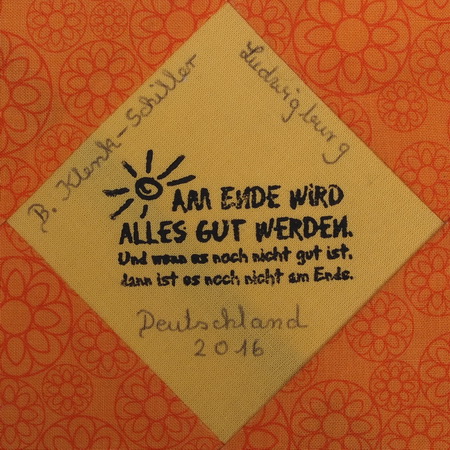 B. Klenk-Schiller
Ludwigburg
AM ENDE WiRD
ALLES GUT WERDEN.
Und wenn es noch nicht gut ist,
dann ist es noch nicht am Ende.
Deutschland
2016